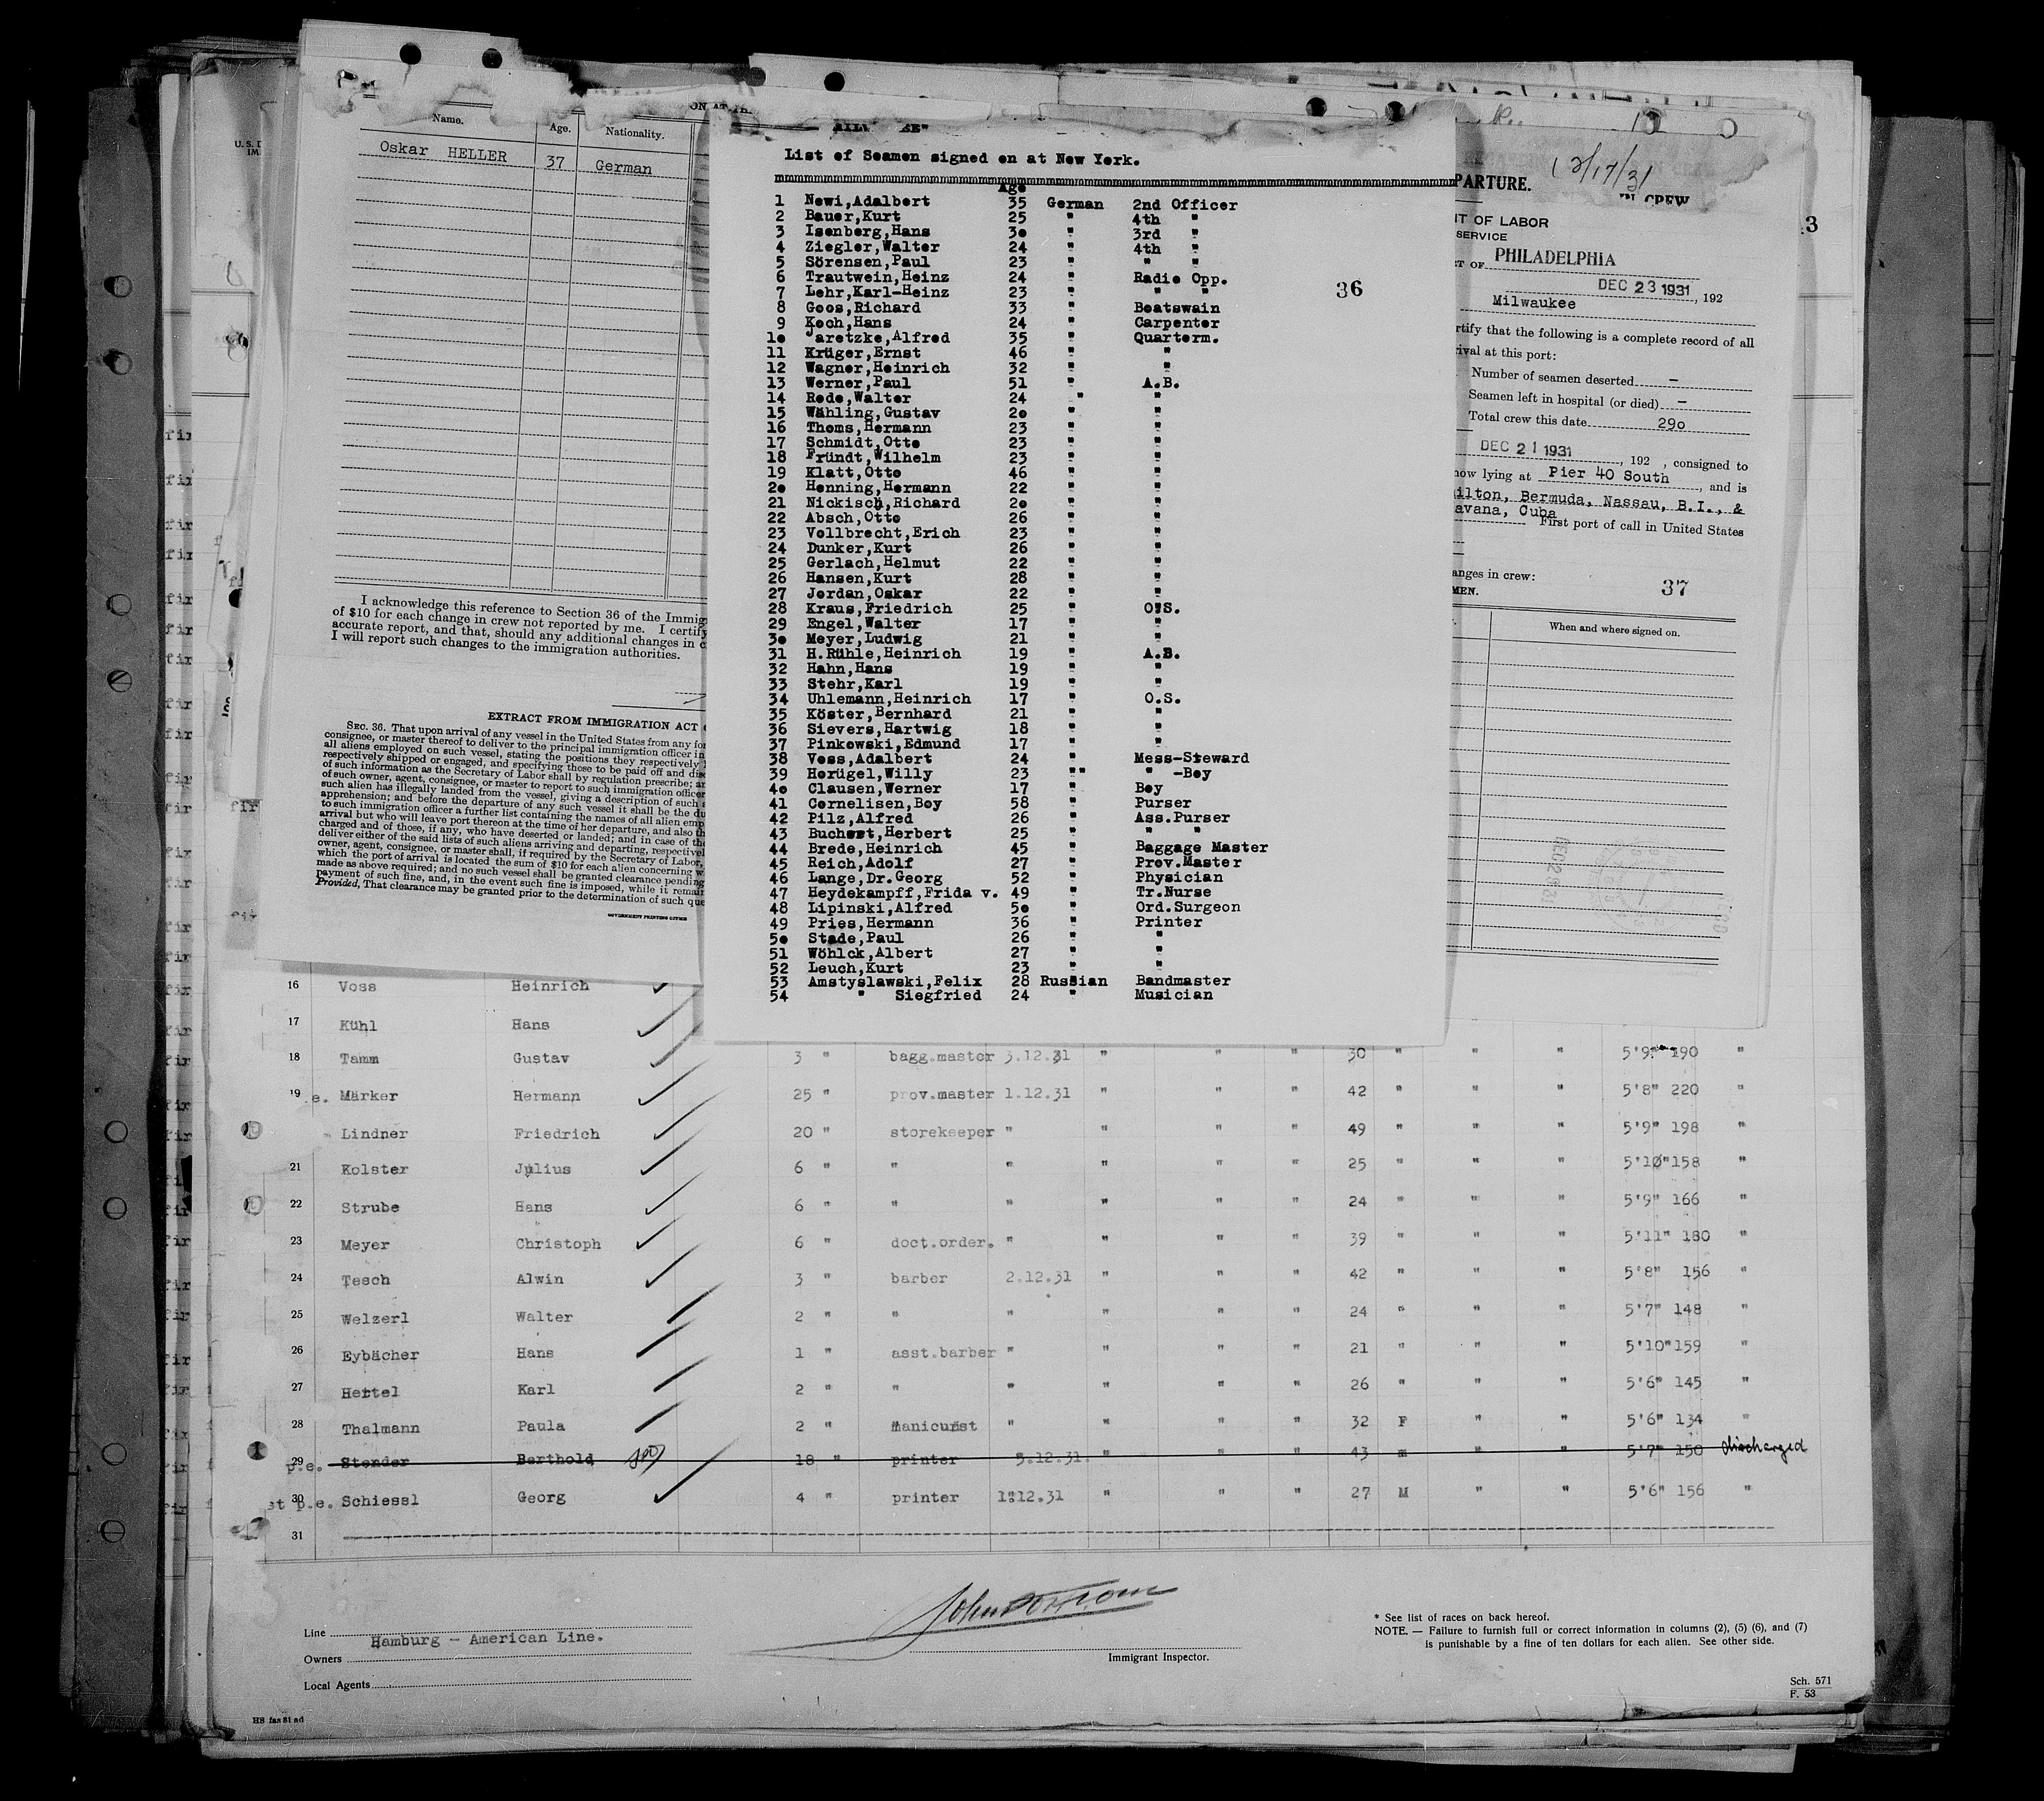 Name. Age. Nationality.
Oskar HELLER 37 German
I acknowledge this reference to Section 36 of the Immig
of $10 for each change in crew not reported by me. I certify
accurate report, and that, should any additional changes in c
I will report such changes to the immigration authorities.
EXTRACT FROM IMMIGRATION ACT
SEC. 36. That upon arrival of any vessel in the United States from any for
consignee, or master thereof to deliver to the principal immigration officer in
all aliens employed on such vessel, stating the positions they respectively
respectively shipped or engaged, and specifying those to be paid off and dis
of such information as the Secretary of Labor shall by regulation prescribe; a
of such owner, agent, consignee, or master to report to such immigration officer
such alien has illegally landed from the vessel, giving a description of such
apprehension; and before the departure of any such vessel it shall be the du
to such immigration officer a further list containing the names of all alien emp
arrival but who will leave port thereon at the time of her departure, and also th
charged and of those, if any, who have deserted or landed; and in case of the
deliver either of the said lists of such aliens arriving and departing, respectivel
owner, agent, consignee, or master shall, if required by the Secretary of Labor,
which the port of arrival is located the sum of $10 for each alien concerning w
made as above required; and no such vessel shall be granted clearance pending
payment of such fine, and, in the event such fine is imposed, while it remai
Provided, That clearance may be granted prior to the determination of such que
GOVERNMENT PRINTING OFFICE
List of Seamen signed on at New York.
Age
1 Newi,Adalbert 35 German 2nd Officer
2 Bauer,Kurt 25 " 4th "
3 Isenberg,Hans 3o " 3rd "
4 Ziegler,Walter 24 " 4th "
5 Sörensen,Paul 23 " " "
6 Trautwein,Heinz 24 " Radio Opp.
7 Lehr,Karl-Heinz 23 " " "
36
8 Goos,Richard 33 " Boatswain
9 Koch,Hans 24 " Carpenter
1o Jaretzke,Alfred 35 " Quarterm.
11 Krüger,Ernst 46 " "
12 Wagner,Heinrich 32 " "
13 Werner,Paul 51 " A.B.
14 Rode,Walter 24 " "
15 Wähling,Gustav 2o " "
16 Thoms,Hermann 23 " "
17 Schmidt,Otto 23 " "
18 Fründt,Wilhelm 23 " "
19 Klatt,Otto 46 " "
2o Henning,Hermann 22 " "
21 Nickisch,Richard 2o " "
22 Absch,Otto 26 " "
23 Vollbrecht,Erich 23 " "
24 Dunker,Kurt 26 " "
25 Gerlach,Helmut 22 " "
26 Hansen,Kurt 28 " "
27 Jordan,Oskar 22 " "
28 Kraus,Friedrich 25 " O.S.
29 Engel,Walter 17 " "
3o Meyer,Ludwig 21 " "
31 H.Rühle,Heinrich 19 " A.B.
32 Hahn,Hans 19 " "
33 Stehr,Karl 19 " "
34 Uhlemann,Heinrich 17 " O.S.
35 Köster,Bernhard 21 " "
36 Sievers,Hartwig 18 " "
37 Pinkowski,Edmund 17 " "
38 Voss,Adalbert 24 " Mess-Steward
39 Horügel,Willy 23 "" " -Boy
4o Clausen,Werner 17 " Boy
41 Cornelisen,Boy 58 " Purser
42 Pilz,Alfred 26 " Ass.Purser
43 Buchost,Herbert 25 " " "
44 Brede,Heinrich 45 " Baggage Master
45 Reich,Adolf 27 " Prov.Master
46 Lange,Dr.Georg 52 " Physician
47 Heydekampff,Frida v. 49 " Tr.Nurse
48 Lipinski,Alfred 5o " Ord.Surgeon
49 Pries,Hermann 36 " Printer
5o Stade,Paul 26 " "
51 Wöhlck,Albert 27 " "
52 Leuch,Kurt 23 " "
53 Amstyslawski,Felix 28 Russian Bandmaster
54 " Siegfried 24 " Musician
12/17/31
PARTURE.
IN CREW
3
T OF LABOR
SERVICE
T OF PHILADELPHIA
DEC 23 1931, 192
Milwaukee
rtify that the following is a complete record of all
rival at this port:
Number of seamen deserted –
Seamen left in hospital (or died) –
Total crew this date 29o
DEC 21 1931, 192 , consigned to
now lying at Pier 40 South, and is
ilton, Bermuda, Nassau, B.I., &
avana, Cuba
First port of call in United States
anges in crew:
37
MEN.
When and where signed on.
16 Voss Heinrich
17 Kühl Hans
18 Tamm Gustav 3 " bagg.master 3.12.31 " " " 30 " " " 5'9" 190 "
19 Märker Hermann 25 " prov.master 1.12.31 " " " 42 " " " 5'8" 220 "
Lindner Friedrich 20 " storekeeper " " " " 49 " " " 5'9" 198 "
21 Kolster Julius 6 " " " " " " 25 " " " 5'10" 158 "
22 Strube Hans 6 " " " " " " 24 " " " 5'9" 166 "
23 Meyer Christoph 6 " doct.order. " " " " 39 " " " 5'11" 180 "
24 Tesch Alwin 3 " barber 2.12.31 " " " 42 " " " 5'8" 156 "
25 Welzerl Walter 2 " " " " " " 24 " " " 5'7" 148 "
26 Eybächer Hans 1 " asst.barber " " " " 21 " " " 5'10" 159 "
27 Hertel Karl 2 " " " " " " 26 " " " 5'6" 145 "
28 Thalmann Paula 2 " manicurst " " " " 32 F " " 5'6" 134 "
29 p.e. Stender Berthold 18 " printer 5.12.31. " " " 43 m " " 5'7" 150 discharged
30 st p.e. Schiessl Georg 4 " printer 1.12.31 " " " 27 M " " 5'6" 156 "
31
Line
Hamburg - American Line.
Owners
Local Agents
Immigrant Inspector.
* See list of races on back hereof.
NOTE. — Failure to furnish full or correct information in columns (2), (5) (6), and (7)
is punishable by a fine of ten dollars for each alien. See other side.
Sch. 571
F. 53